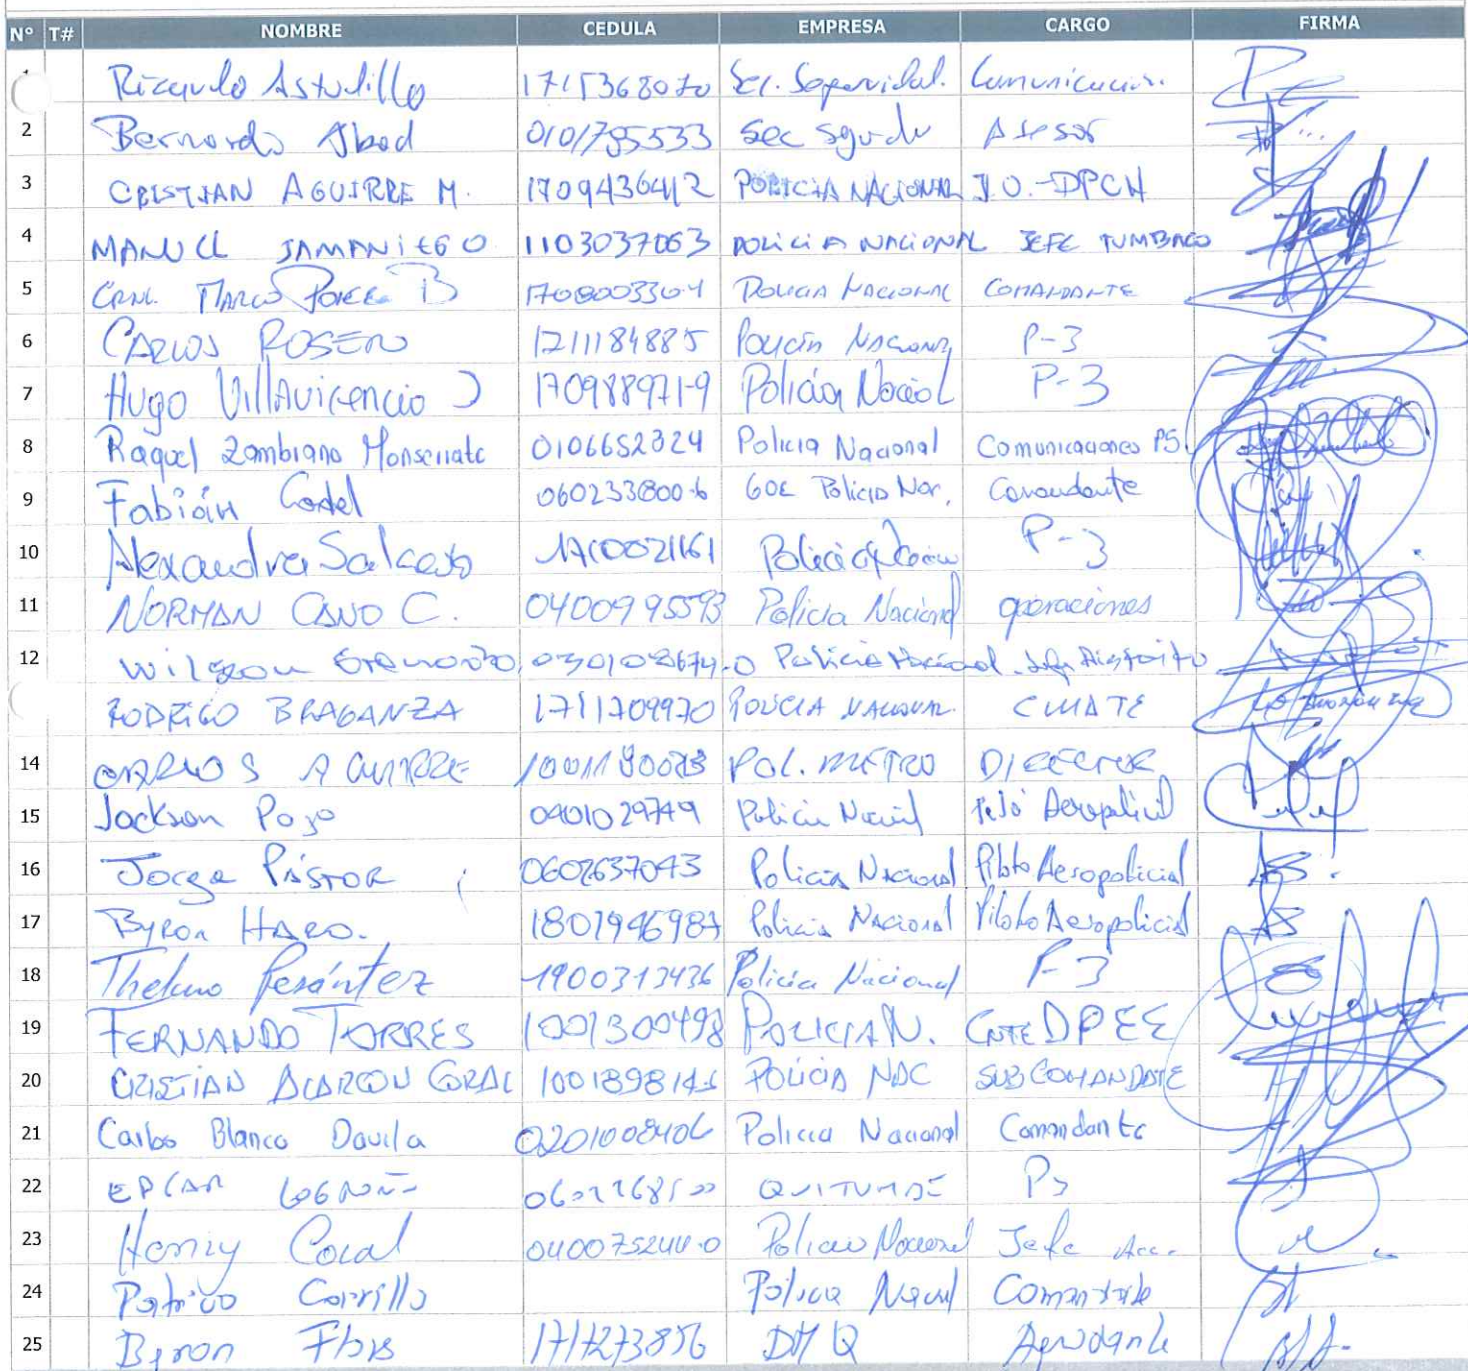 N° T# NOMBRE CEDULA EMPRESA CARGO FIRMA
Ricardo Astudillo 1715368070 Sec. Seguridad. Comunicación.
2 Bernardo Abad 0101795533 Sec Asesor
3 CRISTIAN AGUIRRE M. 1709436412 POLICIA NACIONAL J.O.-DPCH
4 MANUEL JAMANIEGO 1103037063 POLICIA NACIONAL JEFE TUMBACO
5 CRNL. MARCO PONCE B 170800330-1 POLICIA NACIONAL COMANDANTE
6 CARLOS ROSERO 1711184885 Policía Nacional P-3
7 Hugo Villavicencio J 170988971-9 Policía P-3
8 Raquel Zambrano Monserrate 0106652324 Policia Nacional Comunicaciones P5.
9 Fabián 060233800-6 GOE Policia Nac. Comandante
10 Alexandra Salcedo 1710021161 P-3
11 NORMAN CANO C. 0400995593 Policia Nacional operaciones
12 Wilson 030102674-0 Policia Nacional. Jefe Distrito
RODRIGO BRAGANZA 1711709970 POLICIA NACIONAL. CMATE
14 CARLOS AGUIRRE POL. METRO DIRECTOR
15 Jackson Pozo 0401029749 Policia Aeropolicial
16 Jorge PÁSTOR 0602637043 Policia Nacional Piloto Aeropolicial
17 Byron HARO. 1801946987 Policia Nacional Piloto Aeropolicial
18 Thelmo Pesántez 1900313436 Policía Nacional P-3
19 FERNANDO TORRES 1001300498 POLICIA N. CMTE DPEE
20 CRISTIAN ALARCON CORAL POLICIA NAC SUBCOMANDATE
21 Carlos Blanco Davila 0201008406 Policia Nacional Comandante
22 EDGAR LOGROÑO QUITUMBE P3
23 Henry Coral 040075244-0 Policia Nacional Jefe
24 Patricio Carrillo Policia Comandante
25 Byron Flores 1717273856 DMQ